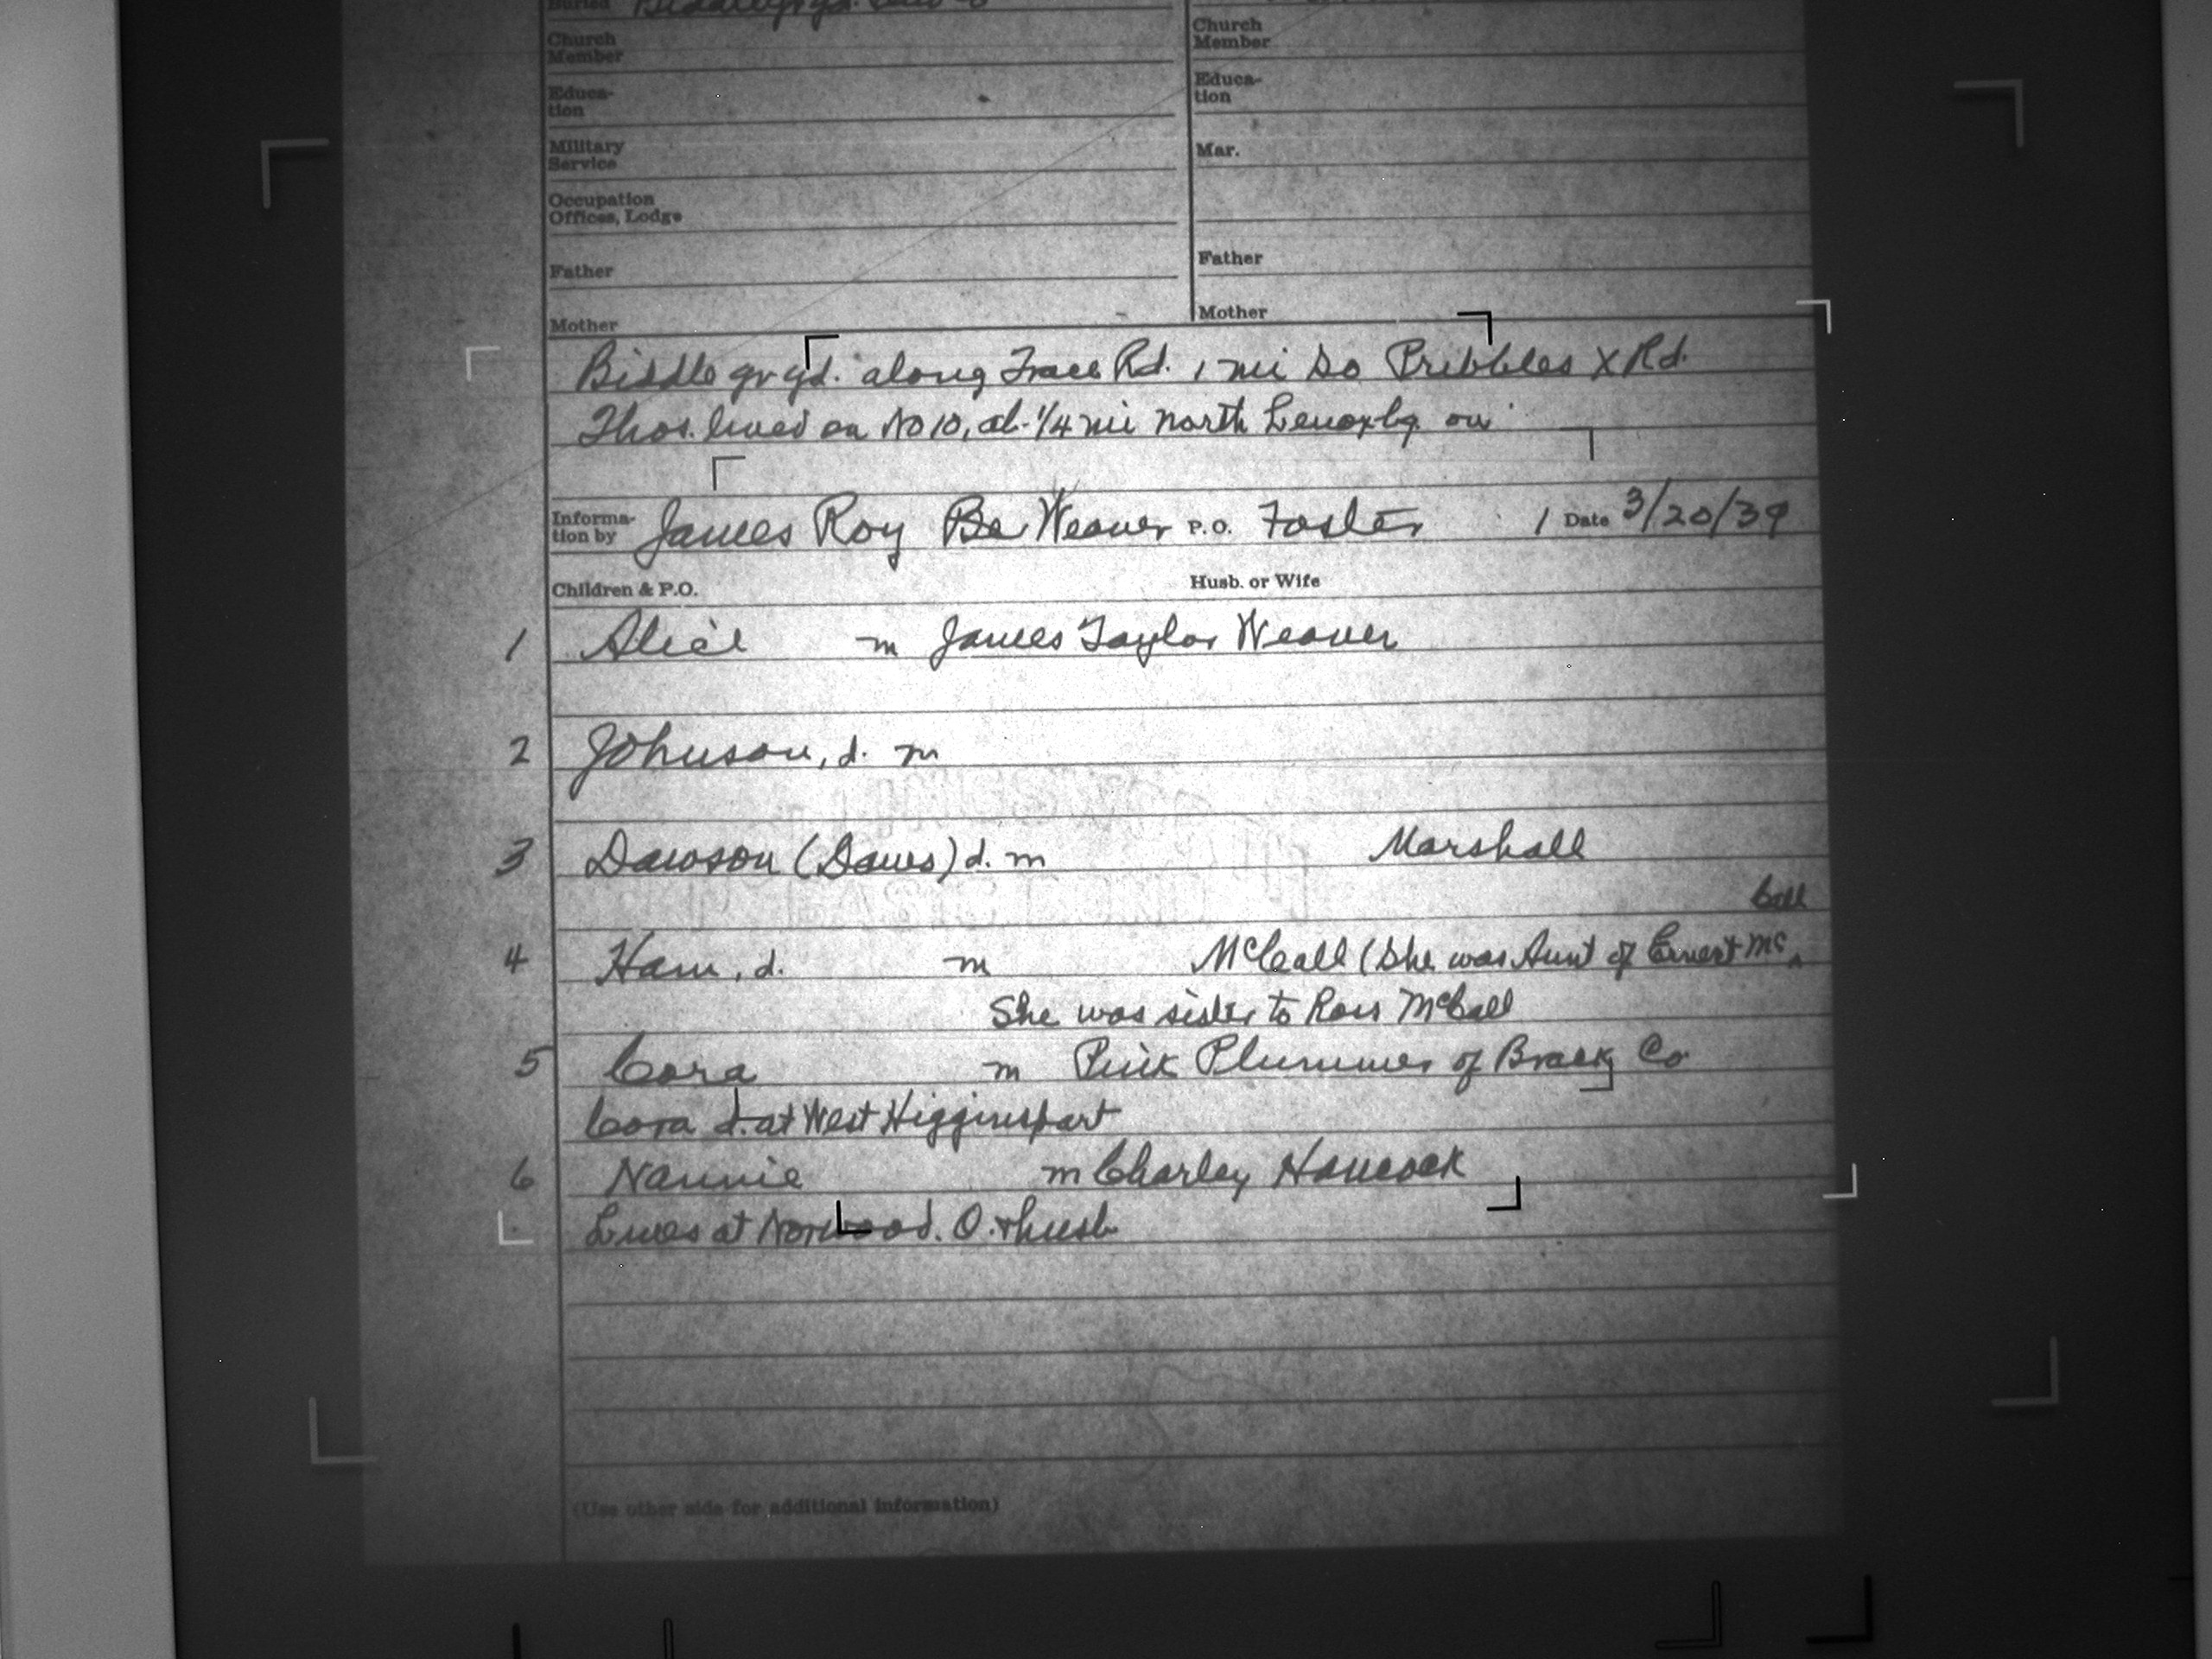 Buried Biddle gr yd.
Church Member
Church Member
Educa-tion
Educa-tion
Military Service
Mar.
Occupation Offices, Lodge
Father
Father
Mother
Mother
Biddle gr yd. along Trace Rd. 1 mi So Pribbles X Rd.
Thos. lived on No 10, ab. 1/4 mi north Lenoxbg. on
Informa-tion by James Roy Be Weaver P.O. Foster 1 Date 3/20/39
Children & P.O. Husb. or Wife
1 Alice m James Taylor Weaver
2 Johnson, d. m
3 Dawson (Daws) d. m Marshall
Call
4 Ham, d. m McCall (She was Aunt of Ernest Mc
She was sister to Ross McCall
5 Cora m Pink Plummer of Brack Co
Cora d. at West Higginsport
6 Nannie m Charley Hancock
Lives at Norwood. O. & husb
(Use other side for additional information)